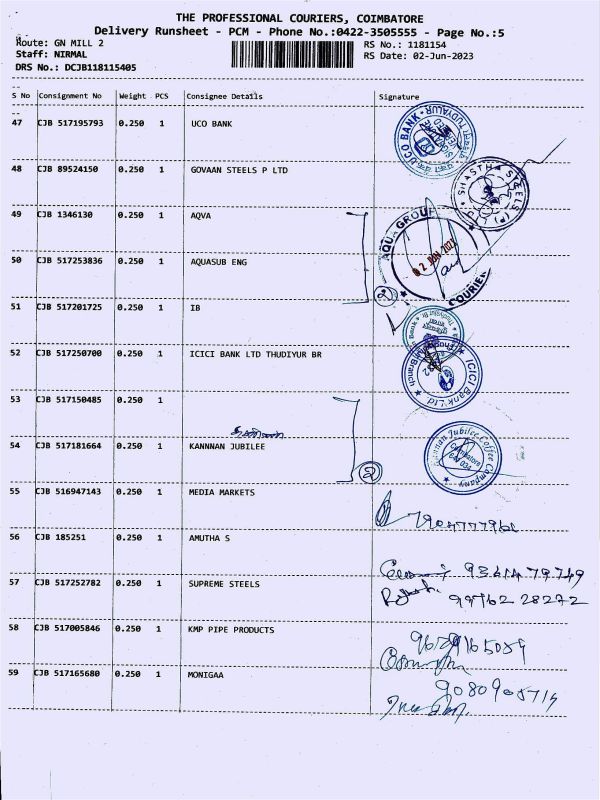 THE PROFESSIONAL COURIERS, COIMBATORE
Delivery Runsheet - PCM - Phone No.:0422-3505555 - Page No.:5
Route: GN MILL 2
RS No.: 1181154
Staff: NIRMAL
RS Date: 02-Jun-2023
DRS No.: DCJB118115405
S No Consignment No Weight PCS Consignee Details Signature
47 CJB 517195793 0.250 1 UCO BANK
48 CJB 89524150 0.250 1 GOVAAN STEELS P LTD
49 CJB 1346130 0.250 1 AQVA
50 CJB 517253836 0.250 1 AQUASUB ENG
51 CJB 517201725 0.250 1 IB
52 CJB 517250700 0.250 1 ICICI BANK LTD THUDIYUR BR
53 CJB 517150485 0.250 1
54 CJB 517181664 0.250 1 KANNNAN JUBILEE
55 CJB 516947143 0.250 1 MEDIA MARKETS
56 CJB 185251 0.250 1 AMUTHA S
57 CJB 517252782 0.250 1 SUPREME STEELS
58 CJB 517005846 0.250 1 KMP PIPE PRODUCTS
59 CJB 517165680 0.250 1 MONIGAA
UCO BANK
SHASTHA STEELS (P)
AQUA GROUP
02 JUN 2023
COURIER
2
ICICI Bank Ltd.
Jubilee Coffee Company
2
99762 28272